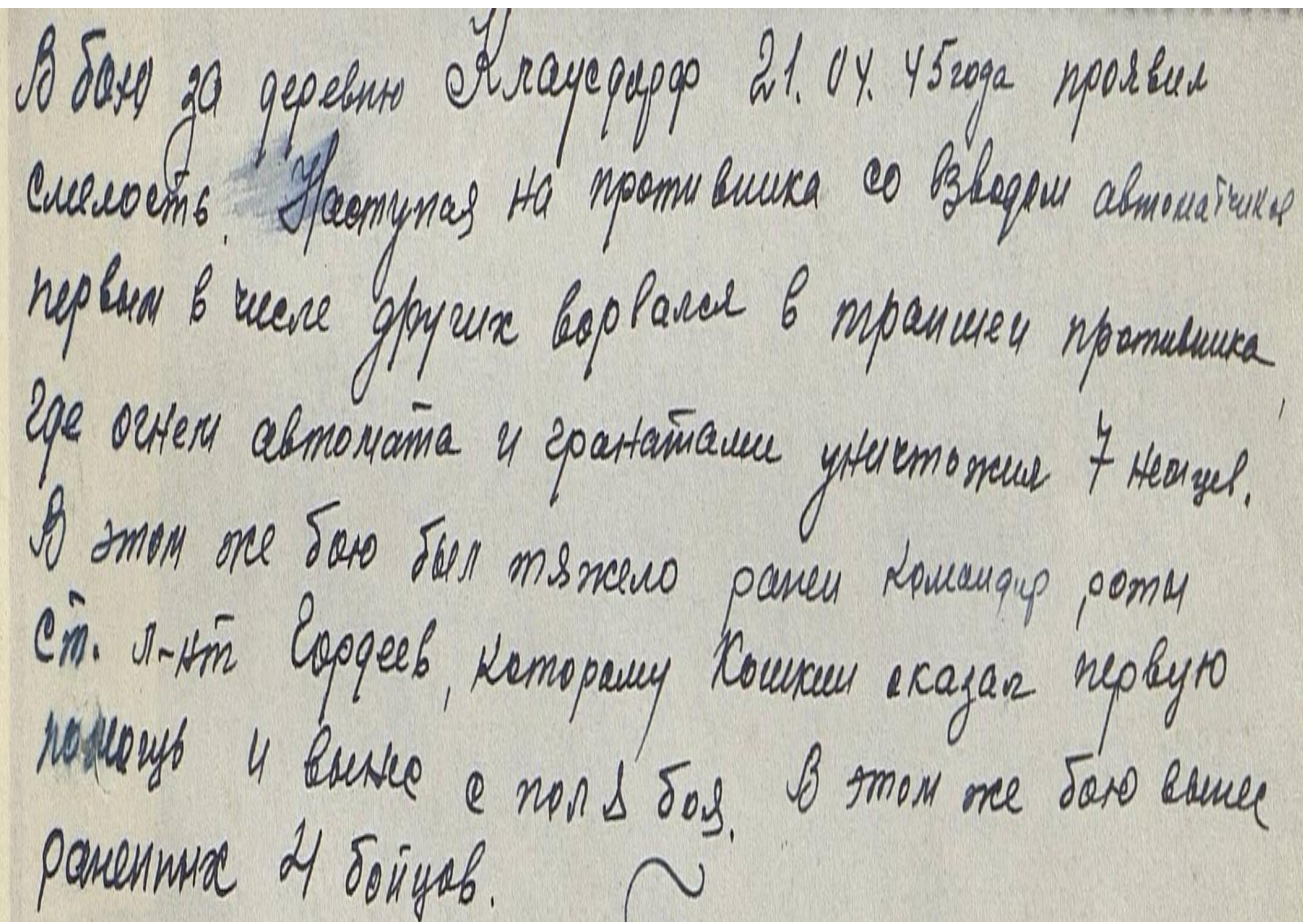 В бою за деревню Клаусдорф 21.04.45 года проявил
смелость. Наступая на противника со взводом автоматчиков
первым в числе других ворвался в траншеи противника,
где огнем автомата и гранатами уничтожил 7 немцев.
В этом же бою был тяжело ранен командир роты
Ст. л-нт Гордеев, которому Кошкин оказал первую
помощь и вынес с поля боя. В этом же бою вынес
раненных 4 бойцов.